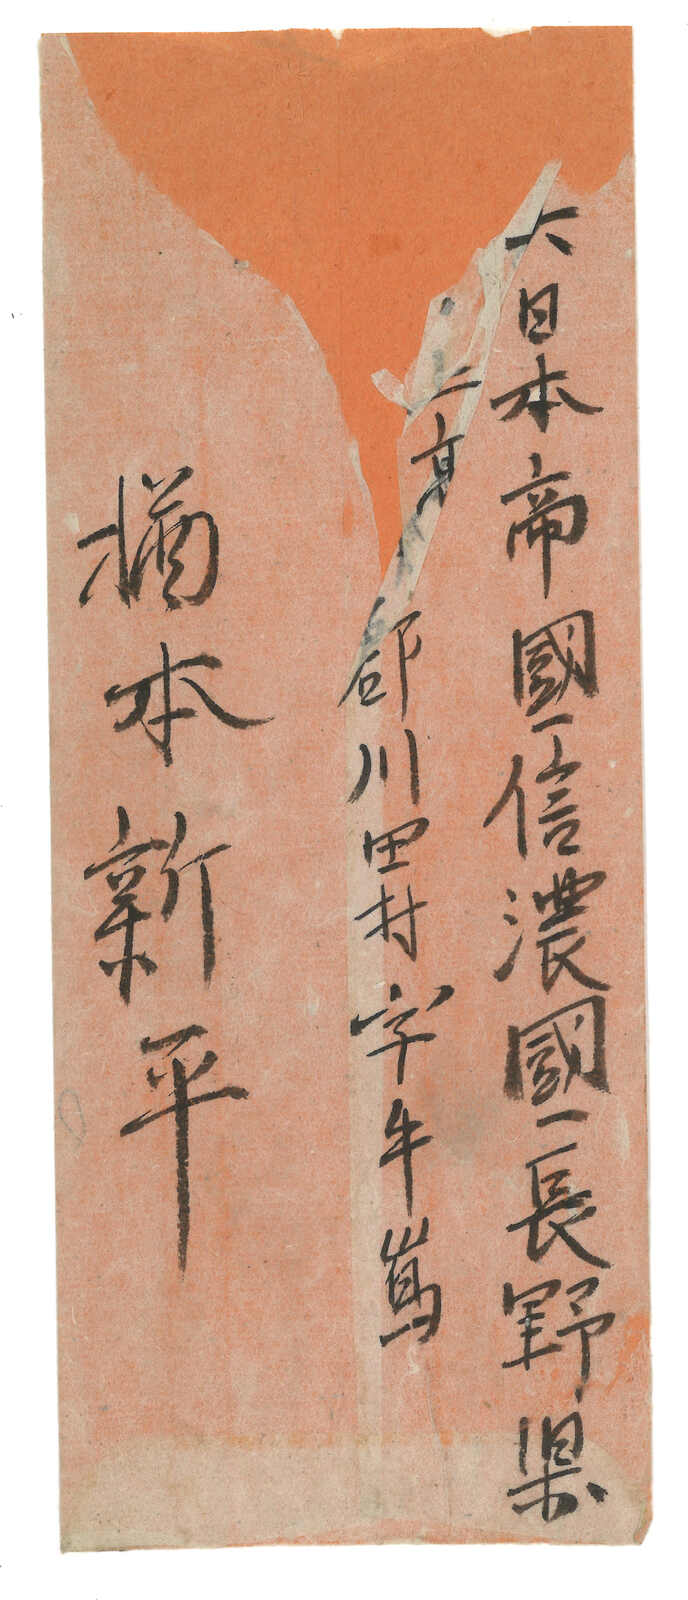 大日本帝國信濃國長野県
上高井郡川田村字牛嶌
楢本新平